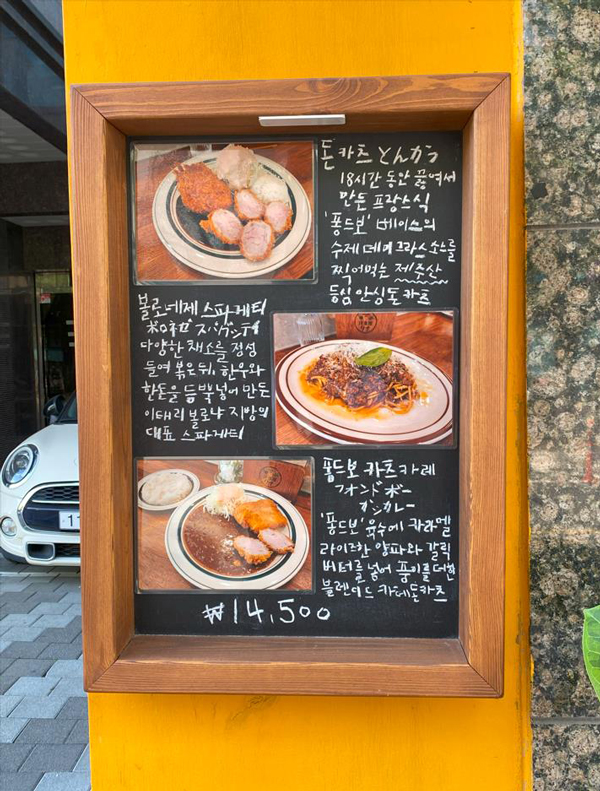 돈카츠 とんかつ
18시간 동안 끓여서
만든 프랑스식
'퐁드보' 베이스의
수제 데미그라스 소스를
찍어먹는 제주산
등심 안심 돈카츠
볼로네제 스파게티
ボロネゼ スパゲッティ
다양한 채소를 정성
들여 볶은뒤, 한우와
한돈을 듬뿍넣어 만든
이태리 볼로냐 지방의
대표 스파게티
퐁드보 카츠카레
フォンドボー
カツカレー
'퐁드보' 육수에 카라멜
라이즈한 양파와 갈릭
버터를 넣어 풍미를 더한
블렌이드 카레돈카츠
₩14,500